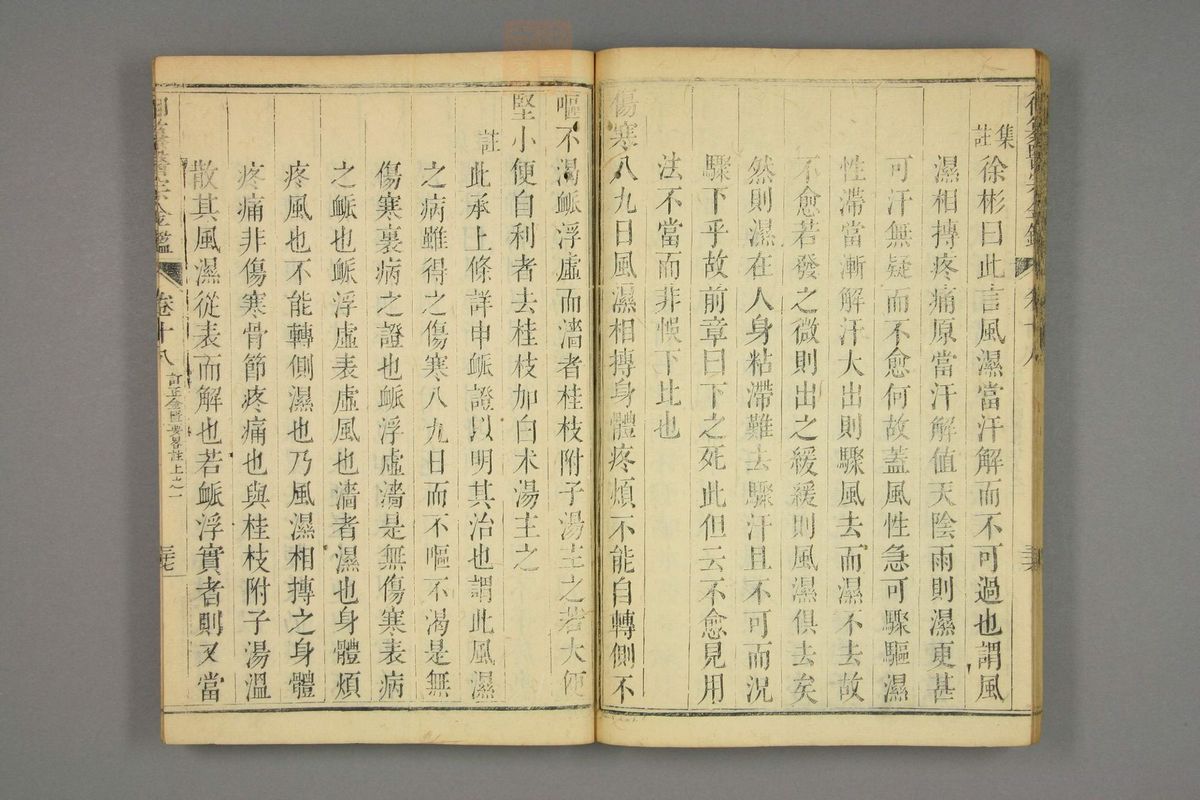 御纂醫宗金鑑 卷十八 三六
集註
徐彬曰此言風濕當汗解而不可過也謂風
濕相摶疼痛原當汗解值天陰雨則濕更甚
可汗無疑而不愈何故蓋風性急可驟驅濕
性滯當漸解汗大出則驟風去而濕不去故
不愈若發之微則出之緩緩則風濕俱去矣
然則濕在人身粘滯難去驟汗且不可而況
驟下乎故前章曰下之死此但云不愈見用
法不當而非悞下比也
傷寒八九日風濕相摶身體疼煩不能自轉側不
嘔不渴脈浮虛而濇者桂枝附子湯主之若大便
堅小便自利者去桂枝加白朮湯主之
註
此承上條詳申脈證以明其治也謂此風濕
之病雖得之傷寒八九日而不嘔不渴是無
傷寒裏病之證也脈浮虛濇是無傷寒表病
之脈也脈浮虛表虛風也濇者濕也身體煩
疼風也不能轉側濕也乃風濕相摶之身體
疼痛非傷寒骨節疼痛也與桂枝附子湯溫
散其風濕從表而解也若脈浮實者則又當
御纂醫宗金鑑 卷十八 訂正金匱要畧註上之一 三七